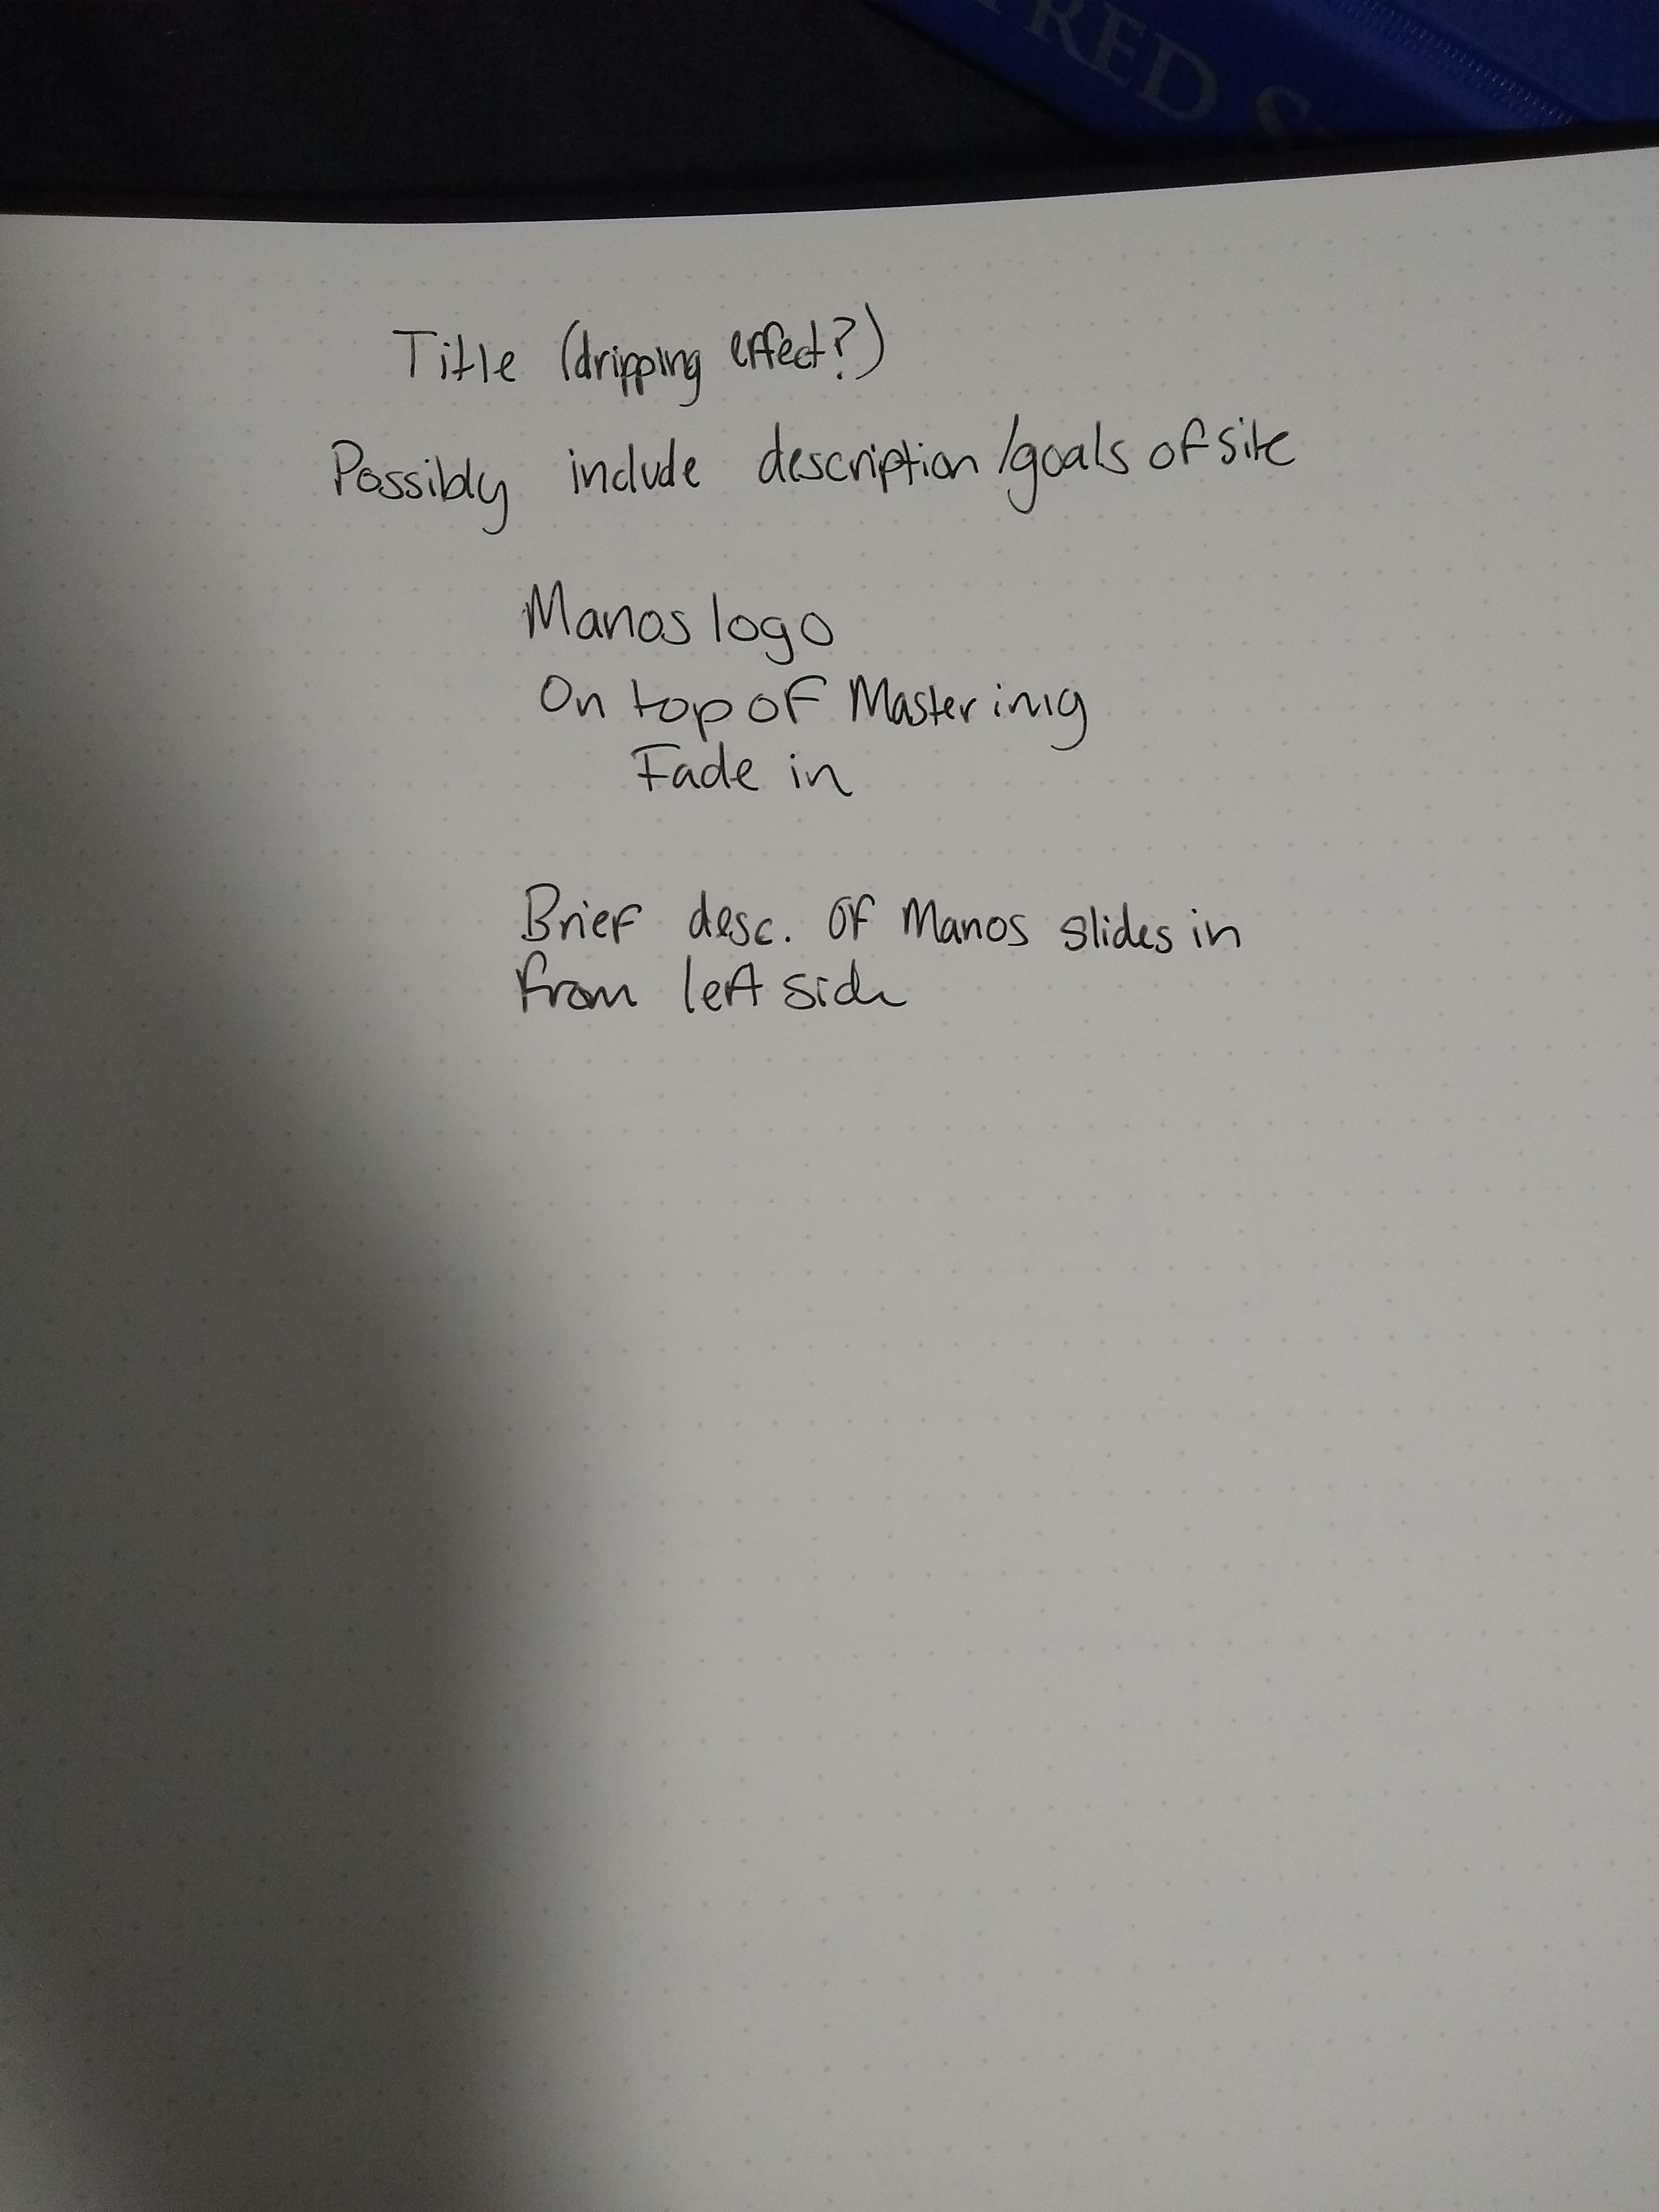 RED S
Title (dripping effect?)
Possibly include description/goals of site
Manos logo
On top of Master
Fade in
Brief desc. of Manos slides in
from left side